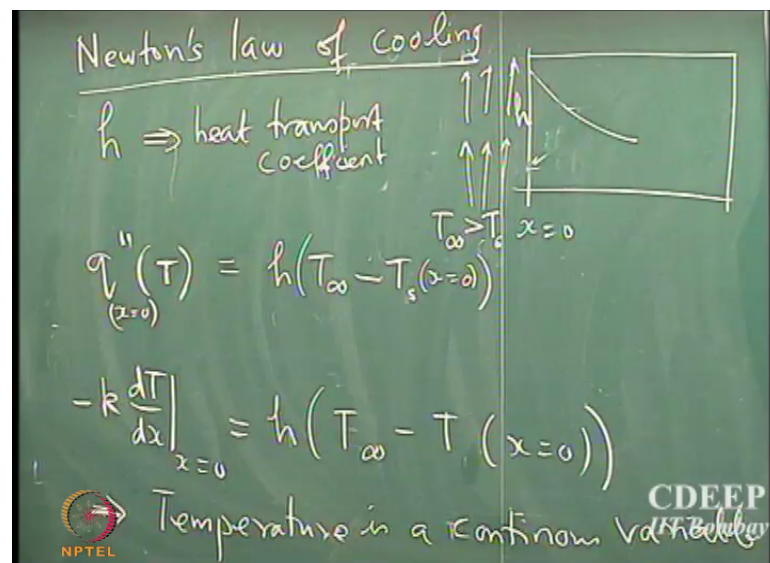 Newton's law of cooling
h ⇒ heat transport
coefficient
h
T∞ > Ts x=0
q"(T) = h(T∞ - Ts(x=0))
(x=0)
-k dT/dx |x=0 = h(T∞ - T(x=0))
⇒ Temperature is a continous variable
CDEEP
IIT Bombay
NPTEL